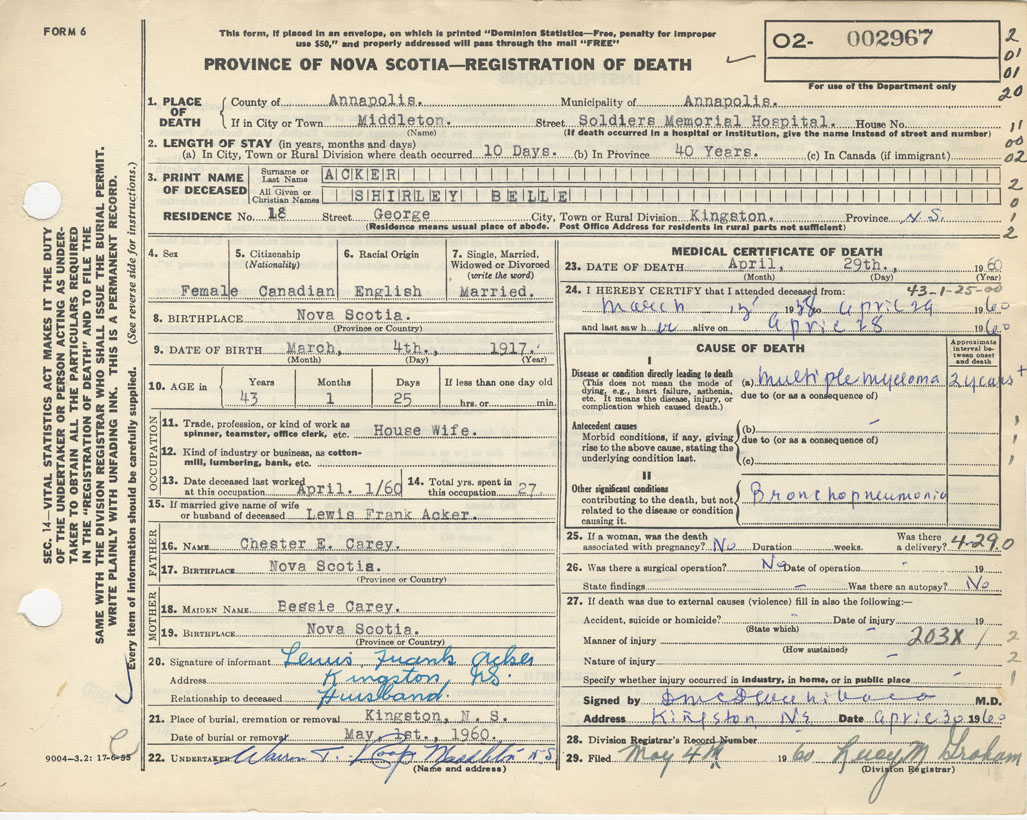 FORM 6
This form, if placed in an envelope, on which is printed "Dominion Statistics—Free, penalty for improper
use $50," and properly addressed will pass through the mail "FREE"
PROVINCE OF NOVA SCOTIA—REGISTRATION OF DEATH
02- 002967
For use of the Department only
2
01
01
20
11
00
02
2
0
1
2
SEC. 14—VITAL STATISTICS ACT MAKES IT THE DUTY
OF THE UNDERTAKER OR PERSON ACTING AS UNDER-
TAKER TO OBTAIN ALL THE PARTICULARS REQUIRED
IN THE "REGISTRATION OF DEATH" AND TO FILE THE
SAME WITH THE DIVISION REGISTRAR WHO SHALL ISSUE THE BURIAL PERMIT.
WRITE PLAINLY WITH UNFADING INK. THIS IS A PERMANENT RECORD.
Every item of information should be carefully supplied. (See reverse side for instructions.)
1. PLACE OF DEATH County of Annapolis. Municipality of Annapolis.
If in City or Town Middleton. Street Soldiers Memorial Hospital. House No.
(Name) (If death occurred in a hospital or institution, give the name instead of street and number)
2. LENGTH OF STAY (in years, months and days)
(a) In City, Town or Rural Division where death occurred 10 Days. (b) In Province 40 Years. (c) In Canada (if immigrant)
3. PRINT NAME OF DECEASED Surname or Last Name ACKER
All Given or Christian Names SHIRLEY BELLE
RESIDENCE No. 18 Street George City, Town or Rural Division Kingston. Province N.S.
(Residence means usual place of abode. Post Office Address for residents in rural parts not sufficient)
4. Sex Female
5. Citizenship (Nationality) Canadian
6. Racial Origin English
7. Single, Married, Widowed or Divorced (write the word) Married.
8. BIRTHPLACE Nova Scotia.
(Province or Country)
9. DATE OF BIRTH March, 4th., 1917.
(Month) (Day) (Year)
10. AGE in Years Months Days If less than one day old
43 1 25 hrs. or min.
OCCUPATION
11. Trade, profession, or kind of work as
spinner, teamster, office clerk, etc. House Wife.
12. Kind of industry or business, as cotton-
mill, lumbering, bank, etc.
13. Date deceased last worked
at this occupation April. 1/60
14. Total yrs. spent in
this occupation 27.
15. If married give name of wife
or husband of deceased Lewis Frank Acker.
FATHER
16. NAME Chester E. Carey.
17. BIRTHPLACE Nova Scotia.
(Province or Country)
MOTHER
18. MAIDEN NAME Bessie Carey.
19. BIRTHPLACE Nova Scotia.
(Province or Country)
20. Signature of informant Lewis Frank Acker
Address Kingston, N.S.
Relationship to deceased Husband.
21. Place of burial, cremation or removal Kingston, N. S.
Date of burial or removal May 1st., 1960.
22. UNDERTAKER Warren T. Roop Middleton N S
(Name and address)
9004—3.2: 17-6-55
MEDICAL CERTIFICATE OF DEATH
23. DATE OF DEATH April, 29th., 1960
(Month) (Day) (Year)
43-1-25-00
24. I HEREBY CERTIFY that I attended deceased from:
March 1958 to April 29 1960
and last saw h er alive on April 28 1960
CAUSE OF DEATH
Approximate interval between onset and death
I
Disease or condition directly leading to death
(This does not mean the mode of
dying, e.g., heart failure, asthenia,
etc. It means the disease, injury, or
complication which caused death.)
(a) Multiple myeloma 2 years +
due to (or as a consequence of)
Antecedent causes
Morbid conditions, if any, giving
rise to the above cause, stating the
underlying condition last.
(b)
due to (or as a consequence of)
(c)
1
1
1
II
Other significant conditions
contributing to the death, but not
related to the disease or condition
causing it.
Bronchopneumonia
25. If a woman, was the death
associated with pregnancy? No Duration weeks. Was there a delivery?
4-29 0
26. Was there a surgical operation? No Date of operation 19
State findings Was there an autopsy? No
27. If death was due to external causes (violence) fill in also the following:—
Accident, suicide or homicide? Date of injury 19
(State which)
Manner of injury 203X 1 2
(How sustained)
Nature of injury 2
Specify whether injury occurred in industry, in home, or in public place 1
Signed by M.D.
Address Kingston NS Date April 30 1960
28. Division Registrar's Record Number
29. Filed May 4th 1960 Lucy M Graham
(Division Registrar)